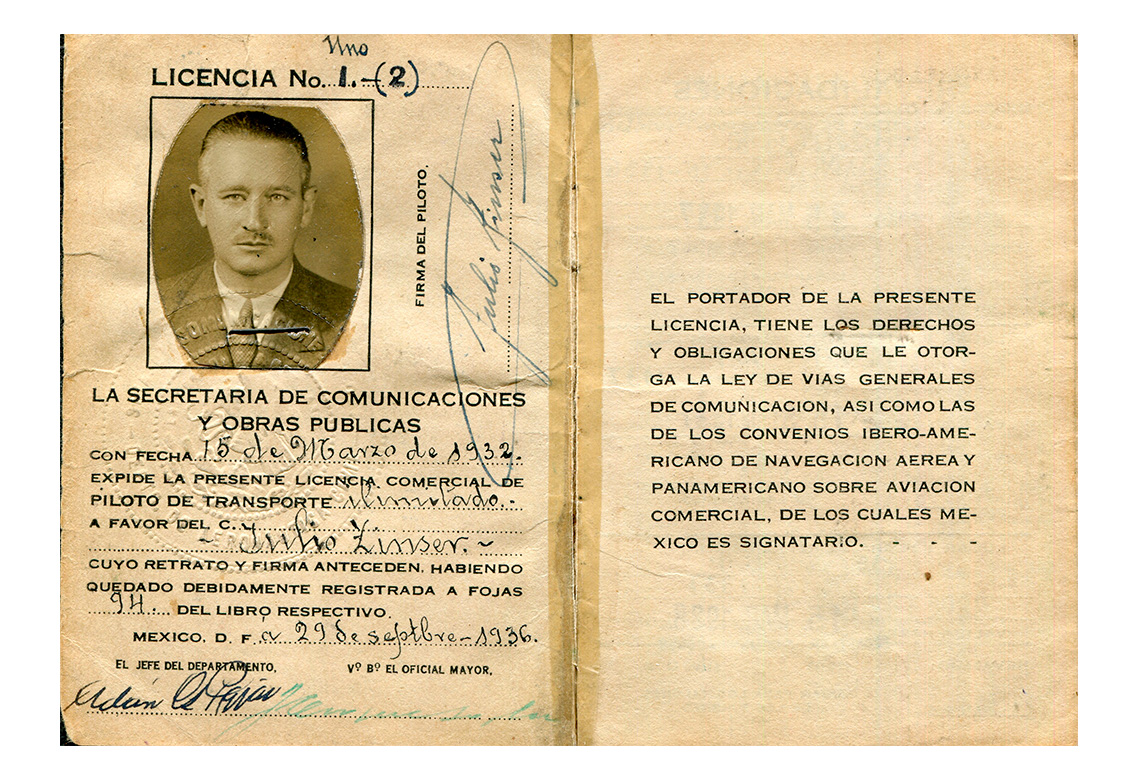 Uno
LICENCIA No. 1.-(2)
FIRMA DEL PILOTO.
Julio Zinser
LA SECRETARIA DE COMUNICACIONES
Y OBRAS PUBLICAS
CON FECHA 15 de Marzo de 1932.
EXPIDE LA PRESENTE LICENCIA COMERCIAL DE
PILOTO DE TRANSPORTE ilimitado.-
A FAVOR DEL C.
- Julio Zinser. -
CUYO RETRATO Y FIRMA ANTECEDEN, HABIENDO
QUEDADO DEBIDAMENTE REGISTRADA A FOJAS
94. DEL LIBRO RESPECTIVO.
MEXICO, D. F. á 29 de septbre-1936.
EL JEFE DEL DEPARTAMENTO, Vº Bº EL OFICIAL MAYOR,
EL PORTADOR DE LA PRESENTE
LICENCIA, TIENE LOS DERECHOS
Y OBLIGACIONES QUE LE OTOR-
GA LA LEY DE VIAS GENERALES
DE COMUNICACION, ASI COMO LAS
DE LOS CONVENIOS IBERO-AME-
RICANO DE NAVEGACION AEREA Y
PANAMERICANO SOBRE AVIACION
COMERCIAL, DE LOS CUALES ME-
XICO ES SIGNATARIO. - - -